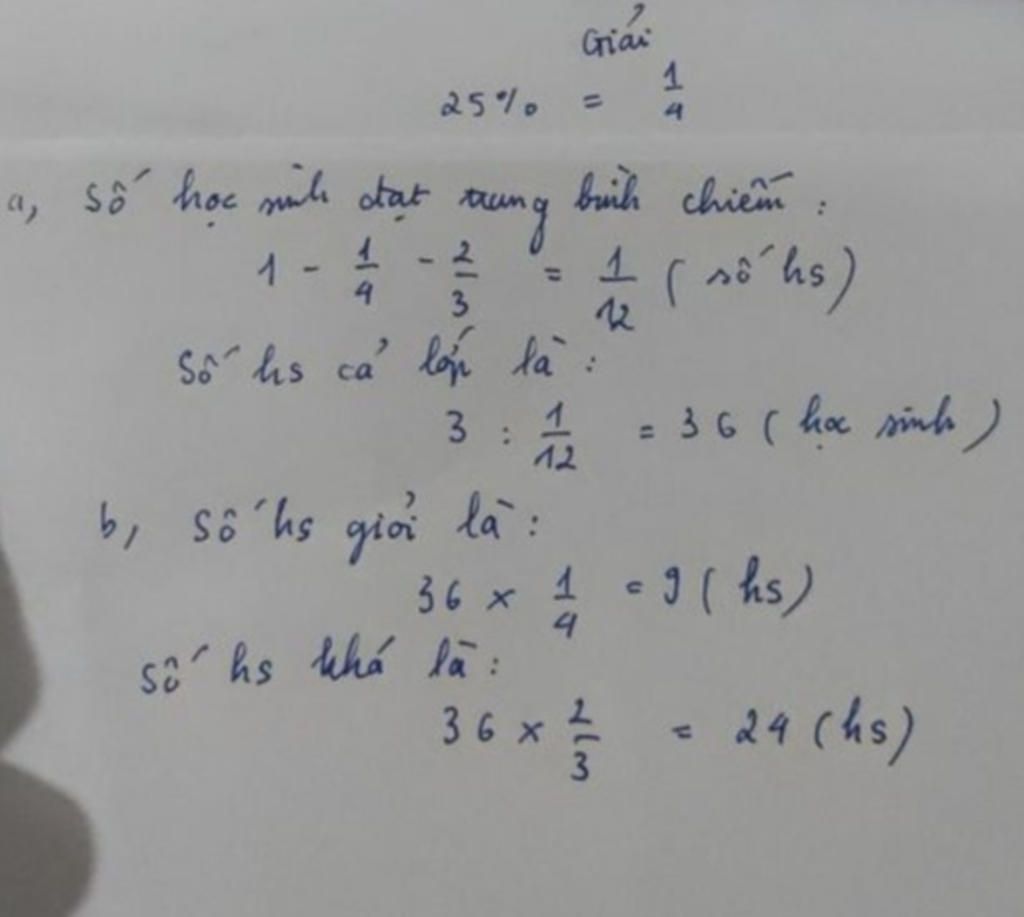 Giải
25% = 1/4
a, Số học sinh đạt trung bình chiếm :
1 - 1/4 - 2/3 = 1/12 ( số hs )
Số hs cả lớp là :
3 : 1/12 = 36 ( học sinh )
b, Số hs giỏi là :
36 x 1/4 = 9 ( hs )
Số hs khá là :
36 x 2/3 = 24 ( hs )